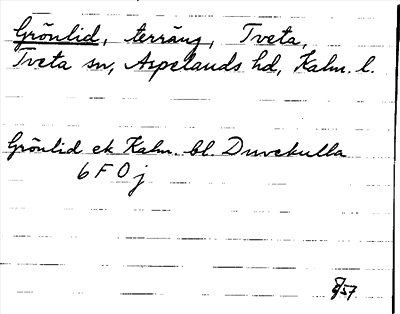 Grönlid, terräng, Tveta,
Tveta sn, Aspelands hd, Kalm. l.
Grönlid ek Kalm. bl. Duvekulla
6 F 0 j